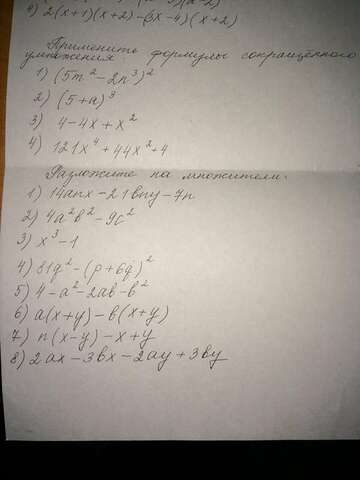 4) 2(x+1)(x+2)-(3x-4)(x+2)
Применить формулы сокращённого
умножения
1) (5m²-2n³)²
2) (5+a)³
3) 4-4x+x²
4) 121x⁴+44x²+4
Разложите на множители:
1) 14anx-21bny-7n
2) 4a²b²-9c²
3) x³-1
4) 81q²-(p+6q)²
5) 4-a²-2ab-b²
6) a(x+y)-b(x+y)
7) n(x-y)-x+y
8) 2ax-3bx-2ay+3by